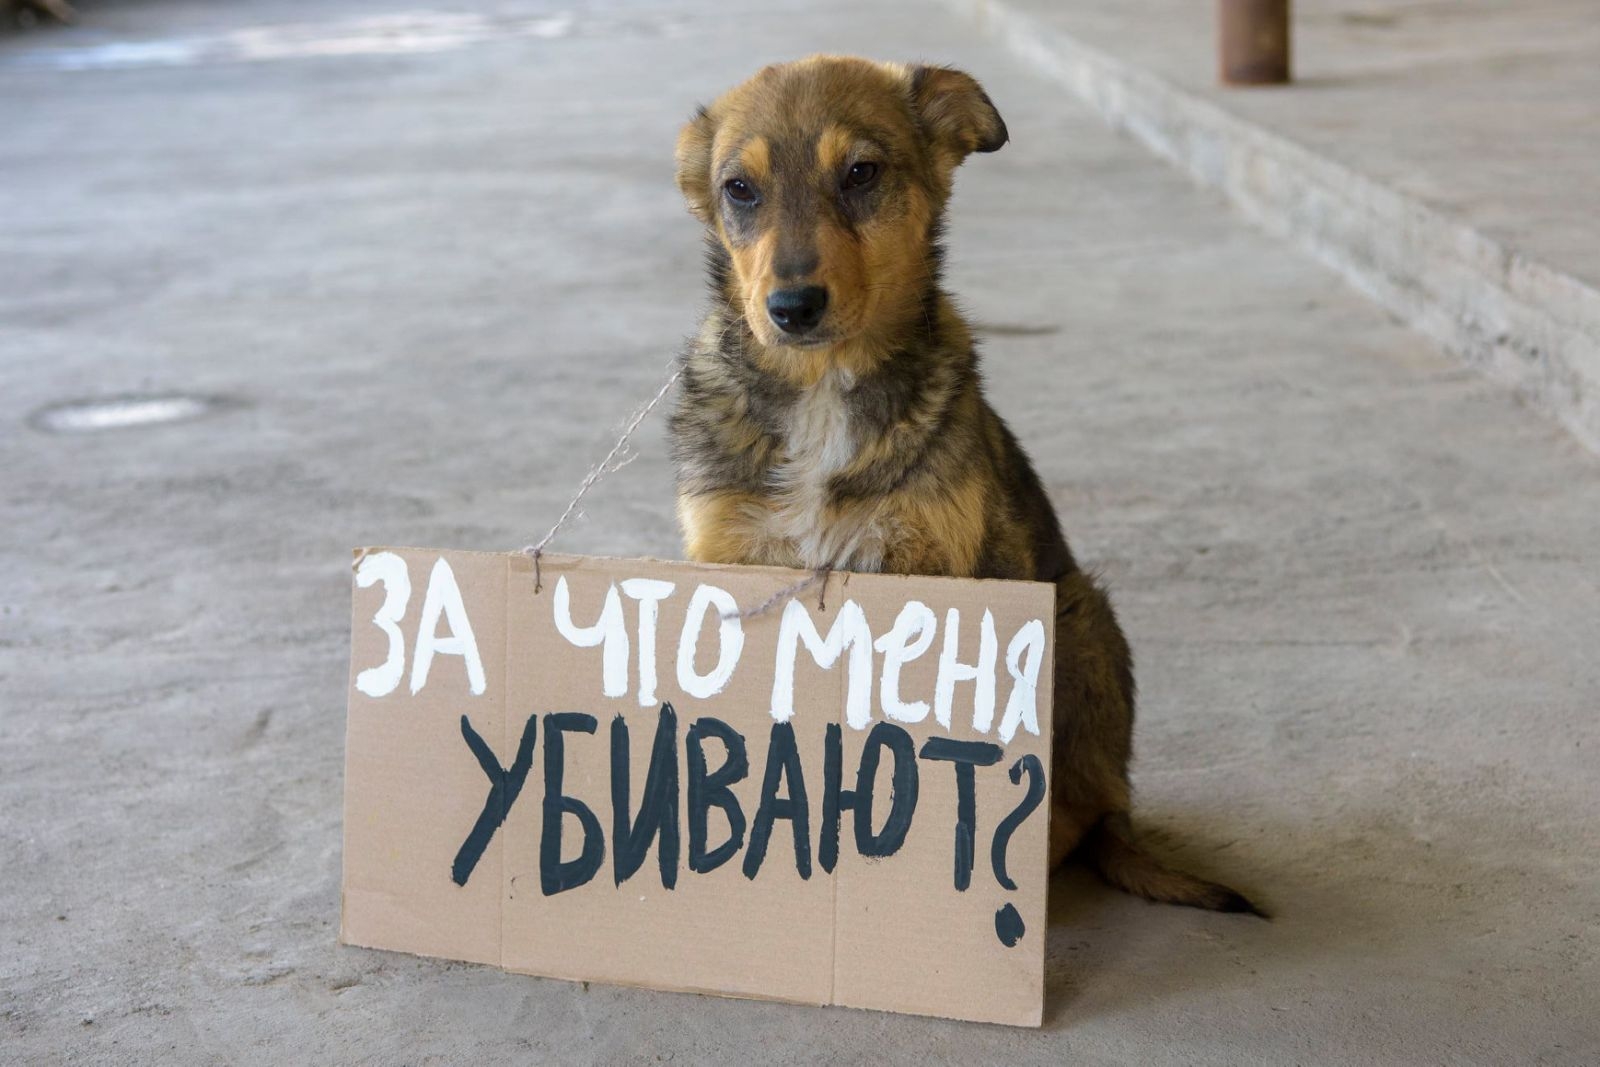 ЗА ЧТО МЕНЯ
УБИВАЮТ?